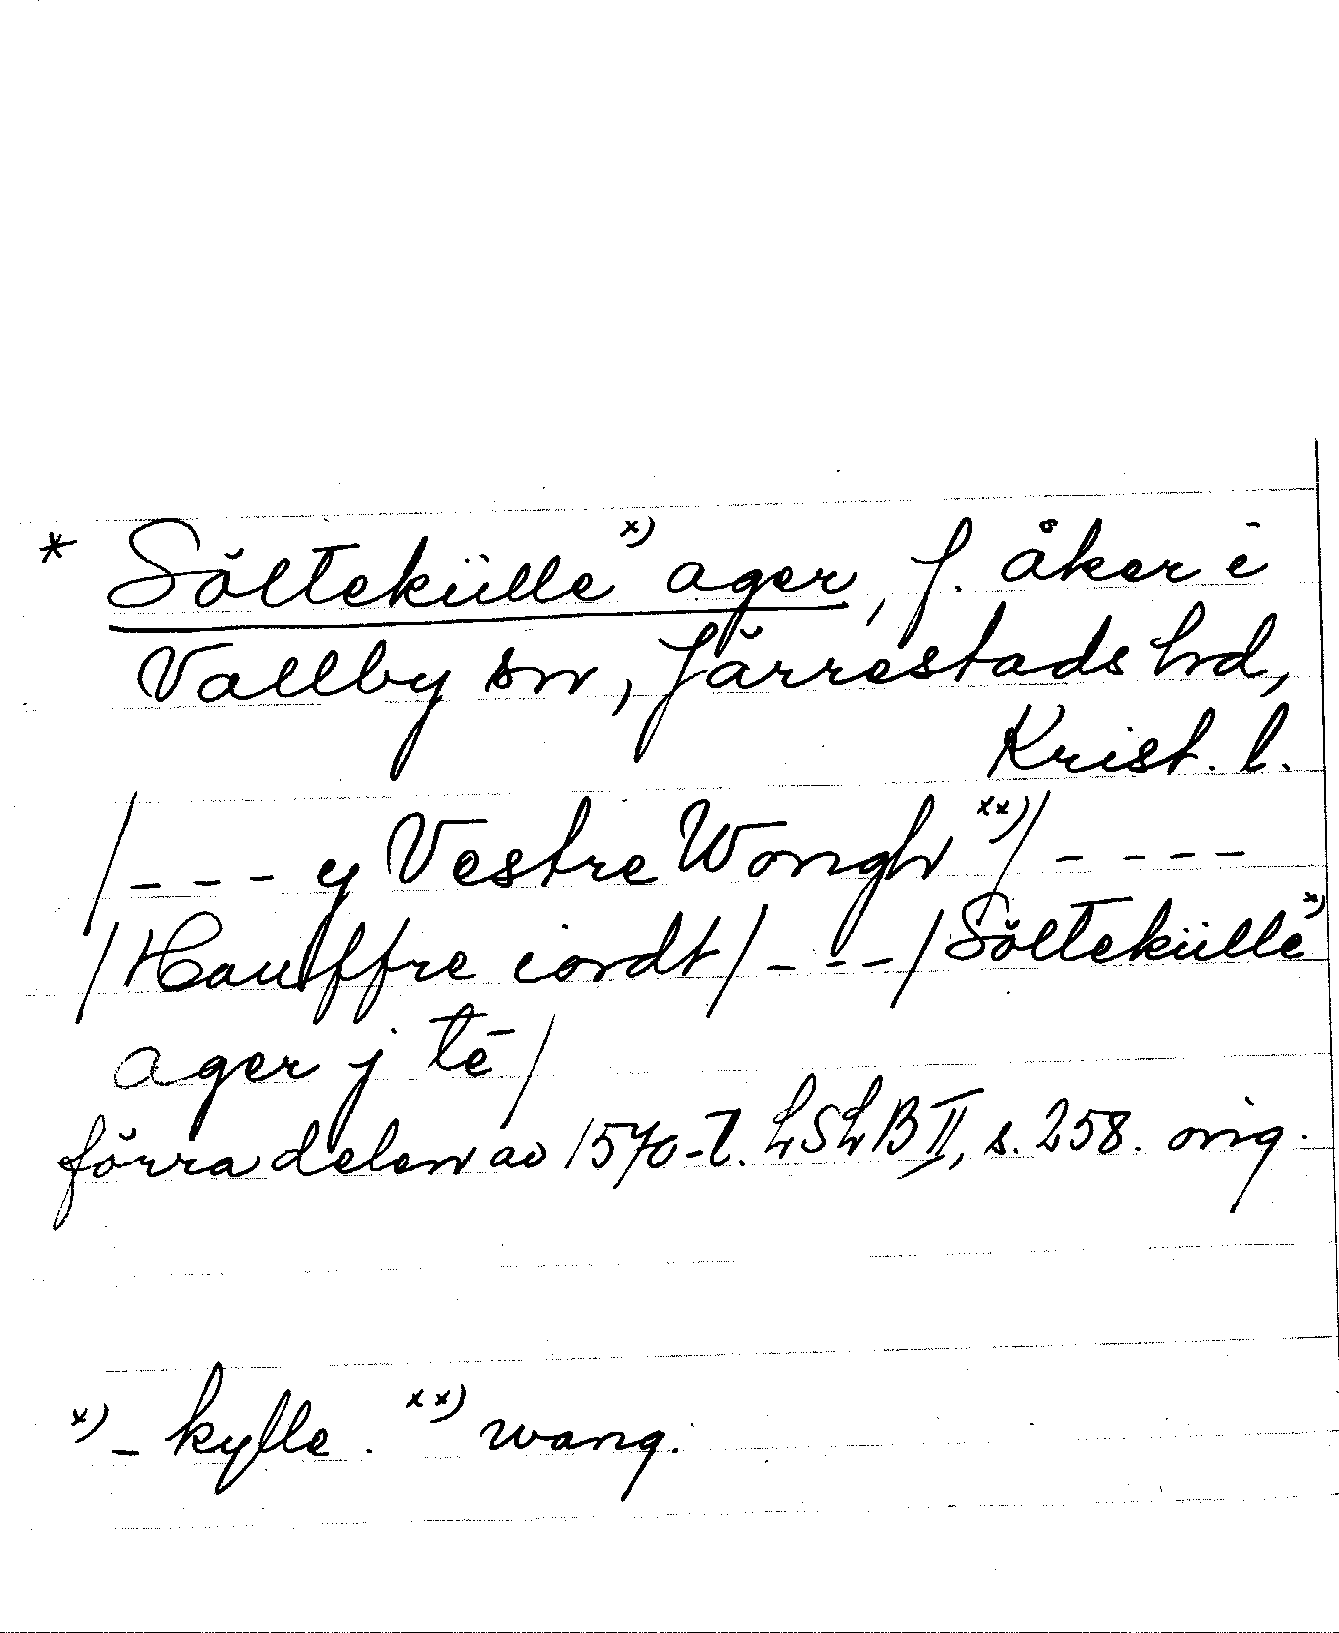 * Söltekülle x) ager, f. åker i
Vallby sn, Järrestads hd,
Krist. l.
/--- y Vestre Wongh xx)/ ----
/Hauffre iordt/---/Söltekülle x)
ager j tē/
förra delen av 1570-t. LSLB II, s. 258. orig.
x) - kylle. xx) wang.